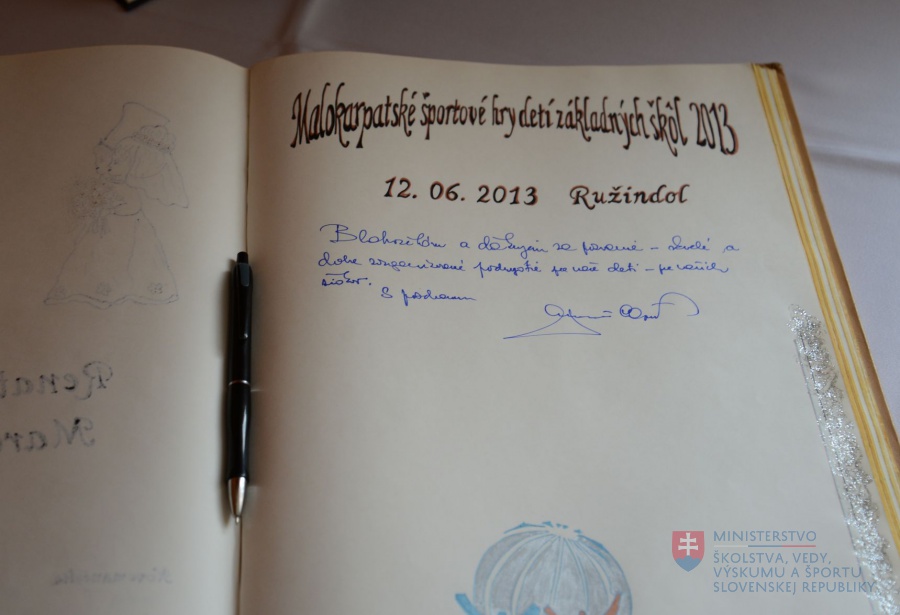 Malokarpatské športové hry detí základných škôl 2013
12. 06. 2013 Ružindol
Blahoželám a ďakujem za pozvané – skvelé a
dobre zorganizované podujatie pre vaše deti – pre vašich
žiakov.
S pozdravom
MINISTERSTVO
ŠKOLSTVA, VEDY,
VÝSKUMU A ŠPORTU
SLOVENSKEJ REPUBLIKY